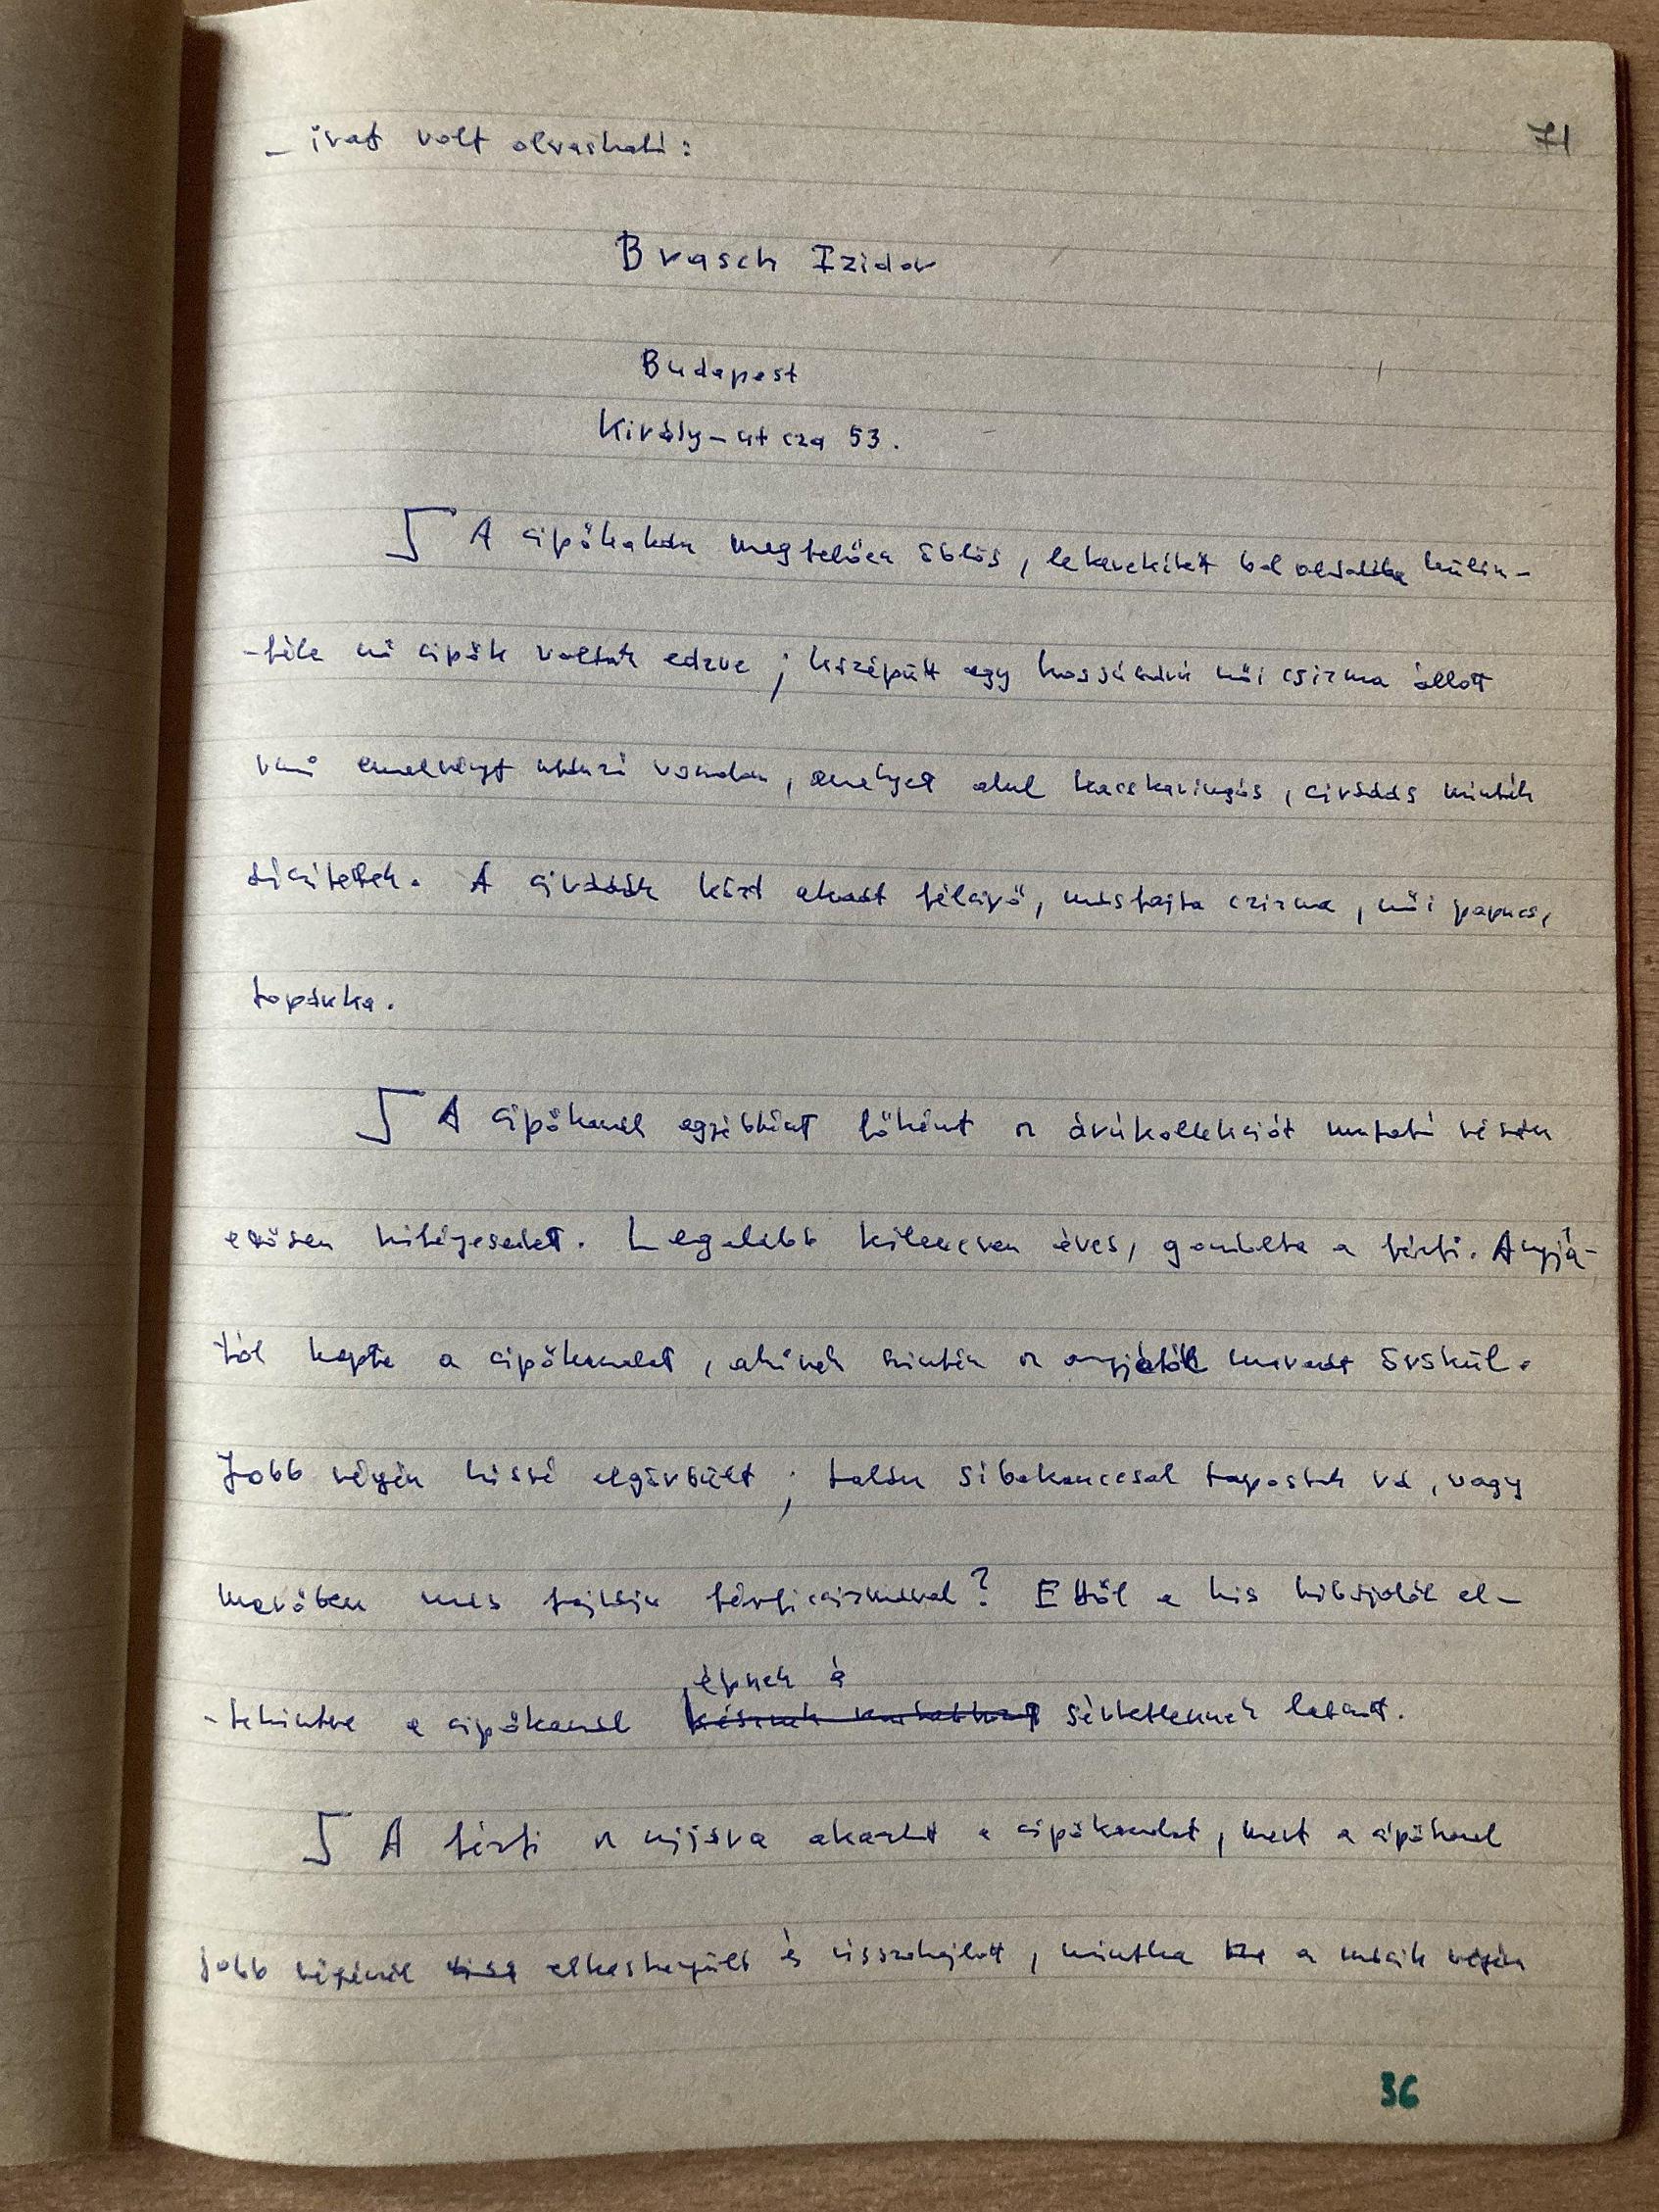 71
– irat volt olvasható:
Brasch Izidor
Budapest
Király-utcza 53.
A cipőkanál öblös, lekerekített bal oldalába külön-
-féle női cipők voltak edzve; középütt egy hosszúszárú női csizma állott
emelvényt utánzó vonalon, amelyet alul kacskaringós, cirádás minták
díszítettek. A cirádák közt akadt félcipő, másfajta czizma, női papucs,
topánka.
A cipőkanál egyébként főként az árúkollekciót mutató részén
erősen kifényesedett. Legalább kilencven éves, gondolta a férfi. Anyjá-
tól kapta a cipőkanalat, akinek szintén az anyjától maradt örökül.
Jobb végén kissé elgörbült; talán síbakanccsal tapostak rá, vagy
merőben más fajtájú férficsizmával? Ettől a kis hibájától el-
épnek é
-tekintve a cipőkanál sértetlennek látszott.
A férfi az ujjára akarta a cipőkanalat, mert a cipőkanál
jobb végénél elkeskenyült és visszahajlott, mintha a másik végén
36